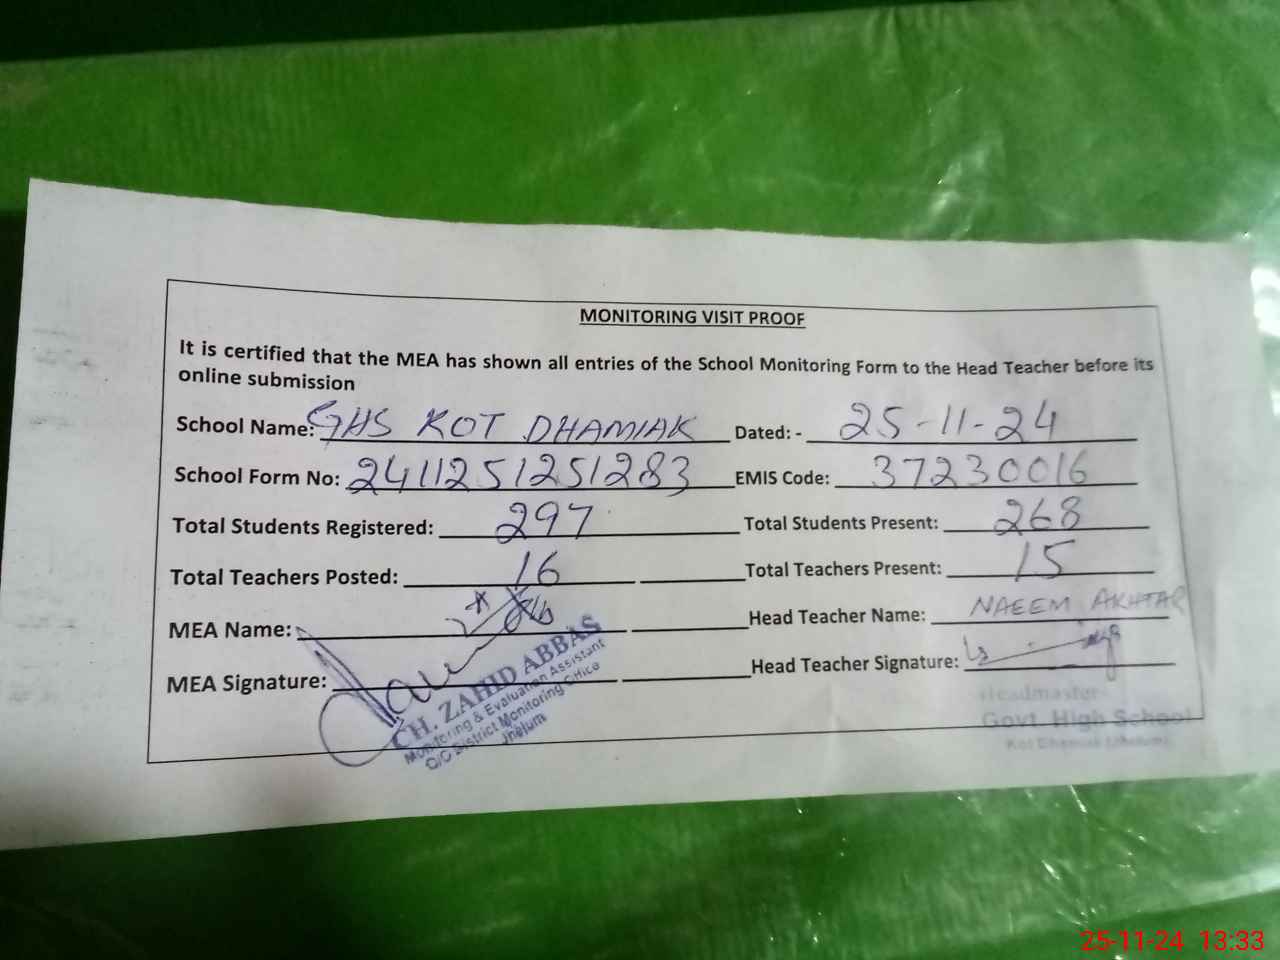 MONITORING VISIT PROOF
It is certified that the MEA has shown all entries of the School Monitoring Form to the Head Teacher before its
online submission
School Name: GHS KOT DHAMIAK Dated: - 25-11-24
School Form No: 2411251251283 EMIS Code: 37230016
Total Students Registered: 297 Total Students Present: 268
Total Teachers Posted: 16 Total Teachers Present: 15
MEA Name: Head Teacher Name: NAEEM AKHTAR
MEA Signature: Head Teacher Signature:
CH. ZAHID ABBAS
Monitoring & Evaluation Assistant
O/O District Monitoring Office
Jhelum
Headmaster
Govt. High School
Kot Dhamiak (Jhelum)
25-11-24 13:33